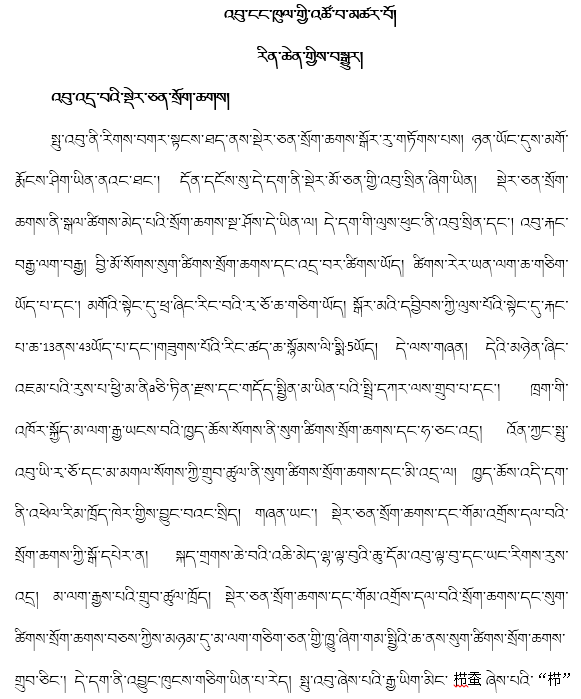 འབུ་ངང་ཁུལ་གྱི་འཚོ་བ་མཚར་པོ།
རིན་ཆེན་གྱིས་བསྒྱུར།
འབུ་འདྲ་བའི་སྡེར་ཅན་སྲོག་ཆགས།
སྤུ་འབུ་ནི་རིགས་བགར་སྟངས་ཐད་ནས་སྡེར་ཅན་སྲོག་ཆགས་སྒོར་རུ་གཏོགས་པས། ཉན་ཡོང་དུས་མགོ་
རྨོངས་ཤིག་ཡིན་ནའང་ཐང་། དོན་དངོས་སུ་དེ་དག་ནི་སྡེར་མོ་ཅན་གྱི་འབུ་སྲིན་ཞིག་ཡིན། སྡེར་ཅན་སྲོག་
ཆགས་ནི་སྒལ་ཚིགས་མེད་པའི་སྲོག་ཆགས་སྔ་ཤོས་དེ་ཡིན་ལ། དེ་དག་གི་ལུས་ཕུང་ནི་འབུ་སྲིན་དང་། འབུ་རྐང་
བརྒྱ་ལག་བརྒྱ། བྱི་མོ་སོགས་སུག་ཚིགས་སྲོག་ཆགས་དང་འདྲ་བར་ཚིགས་ཡོད། ཚིགས་རེར་ཡན་ལག་ཆ་གཅིག་
ཡོད་པ་དང་། མགོའི་སྟེང་དུ་ཕྲ་ཞིང་རིང་བའི་ར་ཅོ་ཆ་གཅིག་ཡོད། སྒོར་མའི་དབྱིབས་ཀྱི་ལུས་པོའི་སྟེང་དུ་རྐང་
པ་ཆ་13ནས་43ཡོད་པ་དང་།གཟུགས་པོའི་རིང་ཚད་ཆ་སྙོམས་ལི་སྨི་5ཡོད། དེ་ལས་གཞན། དེའི་མཉེན་ཞིང་
འཇམ་པའི་རུས་པ་ཕྱི་མ་ནིaཅི་ཏིན་རྫས་དང་གདོད་སྦྱིན་མ་ཡིན་པའི་སྤྲི་དཀར་ལས་གྲུབ་པ་དང་། ཁྲག་གི་
འཁོར་སྐྱོད་མ་ལག་རྒྱ་ཡངས་བའི་ཁྱད་ཆོས་སོགས་ནི་སུག་ཚིགས་སྲོག་ཆགས་དང་ཧ་ཅང་འདྲ། འོན་ཀྱང་སྤུ་
འབུ་ཡི་ར་ཅོ་དང་མ་མགལ་སོགས་ཀྱི་གྲུབ་ཚུལ་ནི་སུག་ཚིགས་སྲོག་ཆགས་དང་མི་འདྲ་ལ། ཁྱད་ཆོས་འདི་དག་
ནི་འཕེལ་རིམ་ཁྲོད་ཁེར་གྱིས་བྱུང་བའང་སྲིད། གཞན་ཡང་། སྡེར་ཅན་སྲོག་ཆགས་དང་གོམ་འགྲོས་དལ་བའི་
སྲོག་ཆགས་ཀྱི་སྒོ་དཔེར་ན། སྐད་གྲགས་ཆེ་བའི་འཆི་མེད་ལྷ་ལྟ་བུའི་ཆུ་དོམ་འབུ་ལྟ་བུ་དང་ཡང་རིགས་རུས་
འདྲ། མ་ལག་རྒྱས་པའི་གྲུབ་ཚུལ་ཁྲོད། སྡེར་ཅན་སྲོག་ཆགས་དང་གོམ་འགྲོས་དལ་བའི་སྲོག་ཆགས་དང་སུག་
ཚིགས་སྲོག་ཆགས་བཅས་ཀྱིས་མཉམ་དུ་མ་ལག་གཅིག་ཅན་གྱི་ཁྱུ་ཞིག་གམ་སྤྱིའི་ཆ་ནས་སུག་ཚིགས་སྲོག་ཆགས་
གྲུབ་ཅིང་། དེ་དག་ནི་འབྱུང་ཁུངས་གཅིག་ཡིན་པ་རེད། སྤུ་འབུ་ཞེས་པའི་རྒྱ་ཡིག་མིང་ 栉蚕 ཞེས་པའི་ “栉”